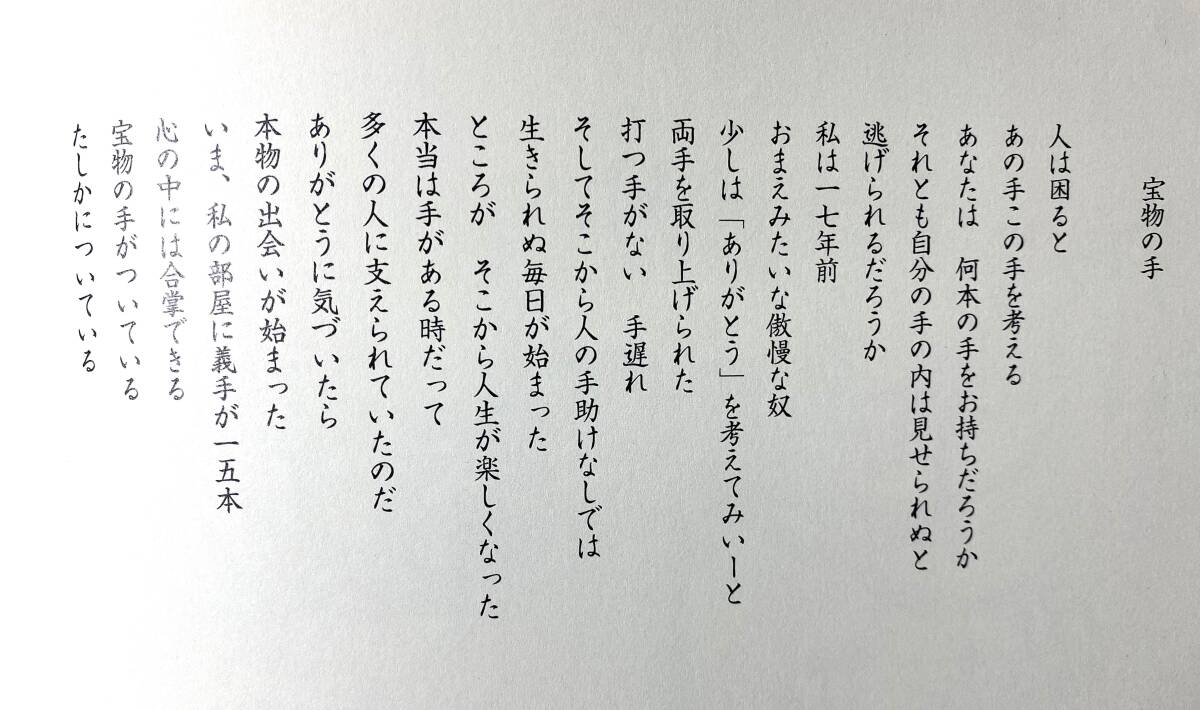 宝物の手
人は困ると
あの手この手を考える
あなたは　何本の手をお持ちだろうか
それとも自分の手の内は見せられぬと
逃げられるだろうか
私は一七年前
おまえみたいな傲慢な奴
少しは「ありがとう」を考えてみぃーと
両手を取り上げられた
打つ手がない　手遅れ
そしてそこから人の手助けなしでは
生きられぬ毎日が始まった
ところが　そこから人生が楽しくなった
本当は手がある時だって
多くの人に支えられていたのだ
ありがとうに気づいたら
本物の出会いが始まった
いま、私の部屋に義手が一五本
心の中には合掌できる
宝物の手がついている
たしかについている